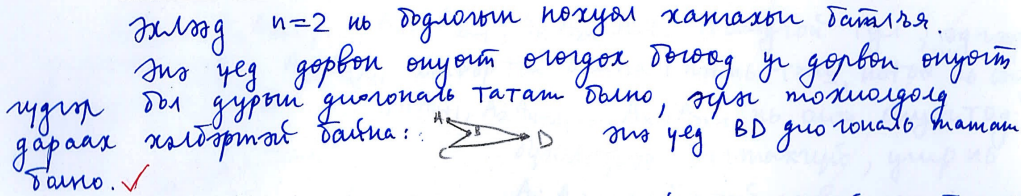 Эхлээд n=2 нь бодлогын нөхцөл хангахыг баталъя.
Энэ үед дөрвөн өнцөгт өгөгдөх бөгөөд уг дөрвөн өнцөгт
гүдгэр бол дурын диогональ татаж болно, эсрэг тохиолдолд
дараах хэлбэртэй байна: A B C D энэ үед BD диогональ татаж
болно. ✓